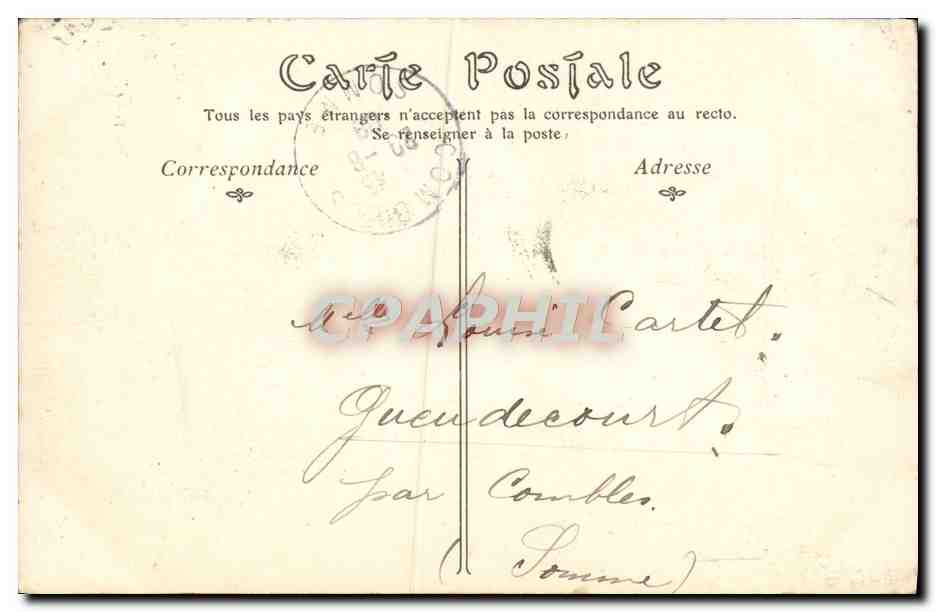 Carte Postale
Tous les pays étrangers n'acceptent pas la correspondance au recto.
Se renseigner à la poste.
Correspondance
Adresse
COMBLES
SOMME
CPAPHIL
Melle Louise Cartel.
Gueudecourt.
par Combles.
(Somme)